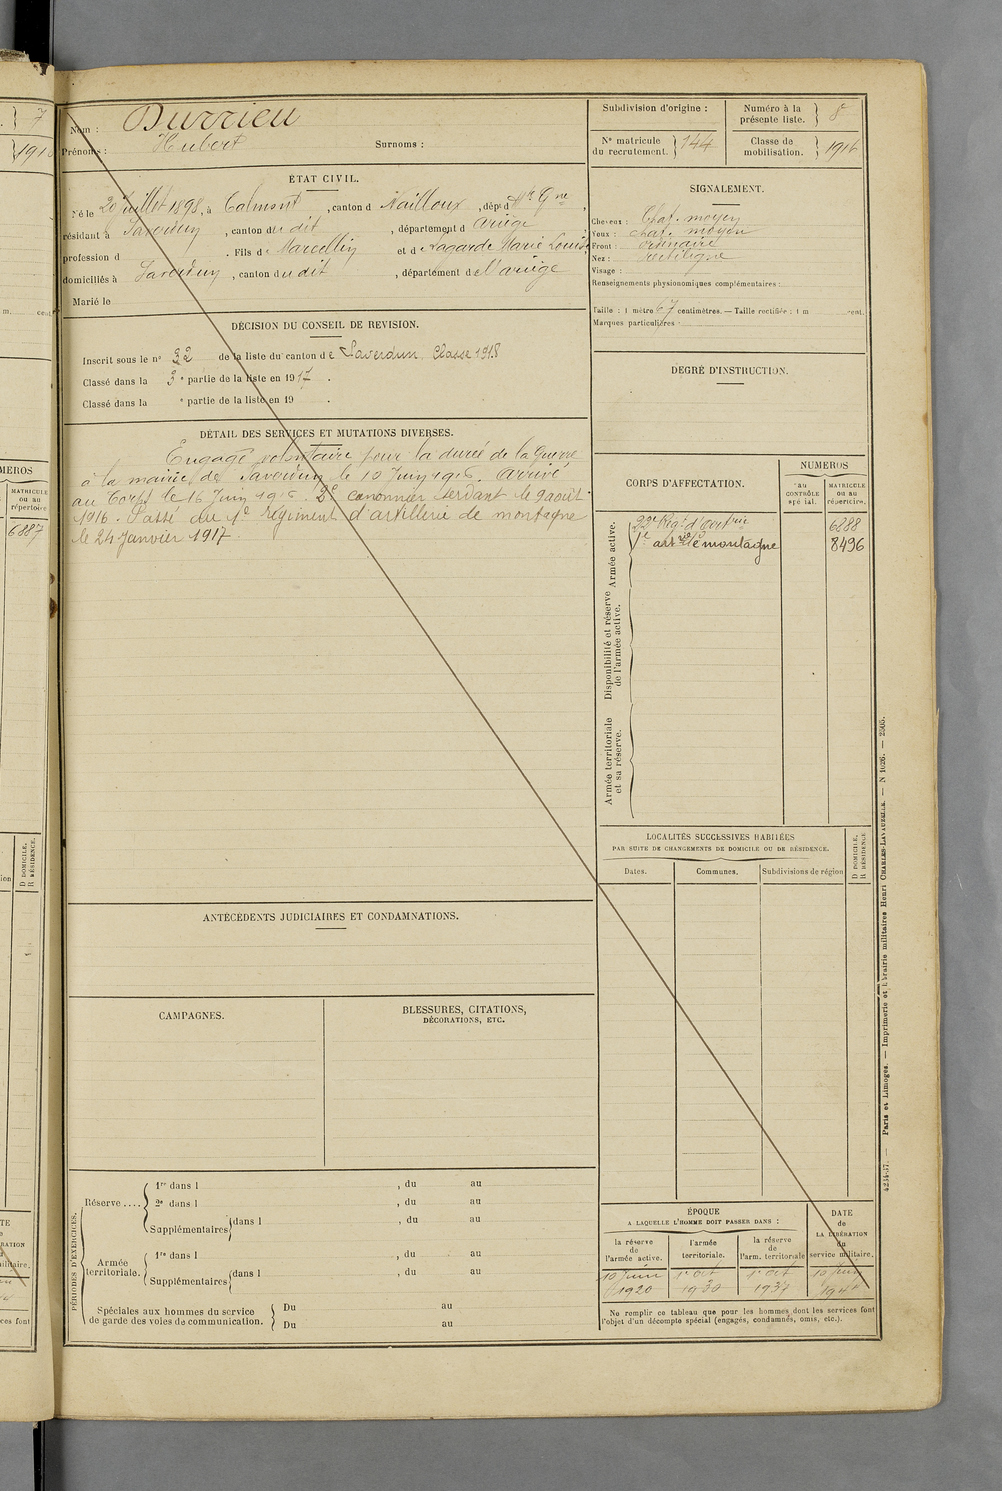 7
1916
m. cent.
MEROS
MATRICULE
ou au
répertoire
6887
D DOMICILE,
R RÉSIDENCE.
Nom : Durrieu
Prénoms : Hubert Surnoms :
ÉTAT CIVIL.
Né le 20 Juillet 1898, à Calmont, canton d Nailloux, dépt d Hte Gne,
résidant à Saverdun, canton du dit, département d Ariège
profession d . Fils de Marcellin et d Lagarde Marie Louise,
domiciliés à Saverdun, canton du dit, département de l'ariège
Marié le
DÉCISION DU CONSEIL DE REVISION.
Inscrit sous le no 32 de la liste du canton de Saverdun Classe 1918
Classé dans la 3e partie de la liste en 1917.
Classé dans la e partie de la liste en 19 .
DÉTAIL DES SERVICES ET MUTATIONS DIVERSES.
Engagé volontaire pour la durée de la Guerre
à la mairie de Saverdun le 10 Juin 1916. Arrivé
au Corps le 16 Juin 1916. 2e canonnier servant le 9 août
1916. Passé au 1e régiment d'artillerie de montagne
le 24 Janvier 1917.
ANTÉCÉDENTS JUDICIAIRES ET CONDAMNATIONS.
CAMPAGNES.
BLESSURES, CITATIONS,
DÉCORATIONS, ETC.
PÉRIODES D'EXERCICES.
Réserve ....
1re dans l , du au
2e dans l , du au
Supplémentaires dans l , du au
Armée
territoriale.
1re dans l , du au
Supplémentaires dans l , du au
Spéciales aux hommes du service
de garde des voies de communication.
Du au
Du au
Subdivision d'origine :
Numéro à la
présente liste. 8
No matricule
du recrutement. 144
Classe de
mobilisation. 1916
SIGNALEMENT.
Cheveux : Chat. moyen
Yeux : chat. moyen
Front : ordinaire
Nez : rectiligne
Visage :
Renseignements physionomiques complémentaires :
Taille : 1 mètre 67 centimètres. — Taille rectifiée : 1 m cent.
Marques particulières :
DEGRÉ D'INSTRUCTION.
CORPS D'AFFECTATION.
NUMÉROS
au
CONTRÔLE
spécial.
MATRICULE
ou au
répertoire.
Armée active.
22e Régt d'Artrie 6288
1e artrie de montagne 8496
Disponibilité et réserve
de l'armée active.
Armée territoriale
et sa réserve.
LOCALITÉS SUCCESSIVES HABITÉES
PAR SUITE DE CHANGEMENTS DE DOMICILE OU DE RÉSIDENCE.
D DOMICILE,
R RÉSIDENCE.
Dates. Communes. Subdivisions de région
ÉPOQUE
A LAQUELLE L'HOMME DOIT PASSER DANS :
la réserve
de
l'armée active.
l'armée
territoriale.
la réserve
de
l'arm. territoriale
DATE
de
LA LIBÉRATION
du
service militaire.
10 Juin 1920
1e Oct 1930
1e Oct 1937
10 Juin
Ne remplir ce tableau que pour les hommes dont les services font
l'objet d'un décompte spécial (engagés, condamnés, omis, etc.).
4254-17. — Paris et Limoges. — Imprimerie et Librairie militaires Henri CHARLES-LAVAUZELLE. — N 1026. — 2505.